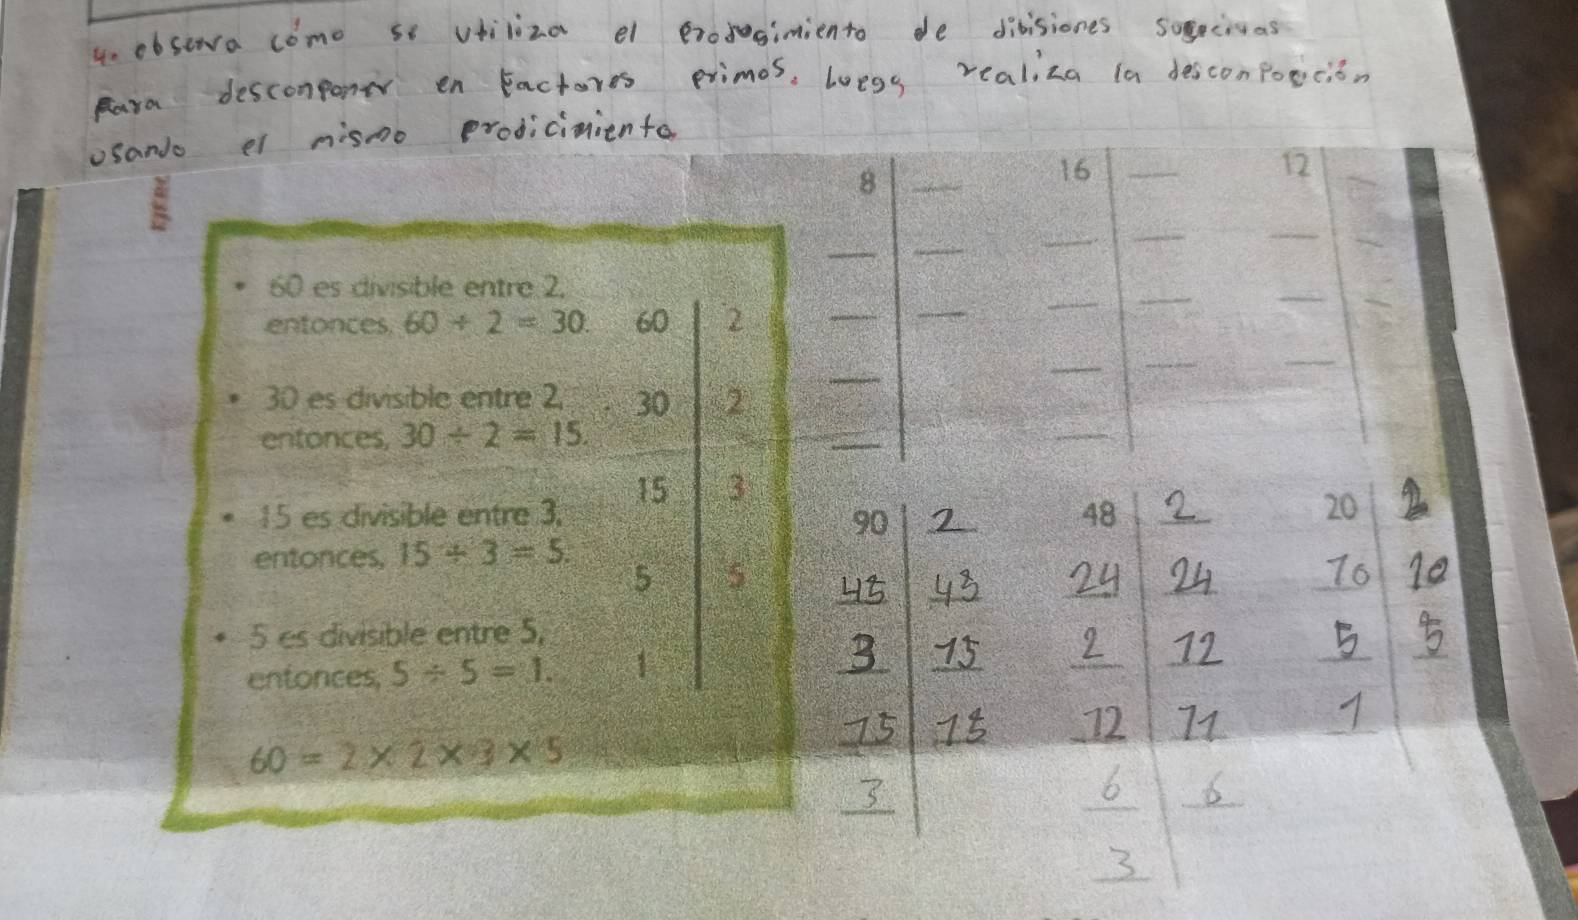 4. observa cómo se utiliza el prodogimiento de divisiones sogecivas
para desconponer en factores primos. Luego, realiza la desconposición
usando el mismo prodicimiento
EJERC
• 60 es divisible entre 2,
entonces, 60 ÷ 2 = 30. 60 2
• 30 es divisible entre 2, 30 2
entonces, 30 ÷ 2 = 15.
• 15 es divisible entre 3, 15 3
entonces, 15 ÷ 3 = 5.
5 5
• 5 es divisible entre 5,
entonces, 5 ÷ 5 = 1. 1
60 = 2 × 2 × 3 × 5
8 16 12
90 2 48 2 20 2
45 43 24 24 10 10
3 15 2 12 5 5
15 15 12 11 1
3 6 6
3